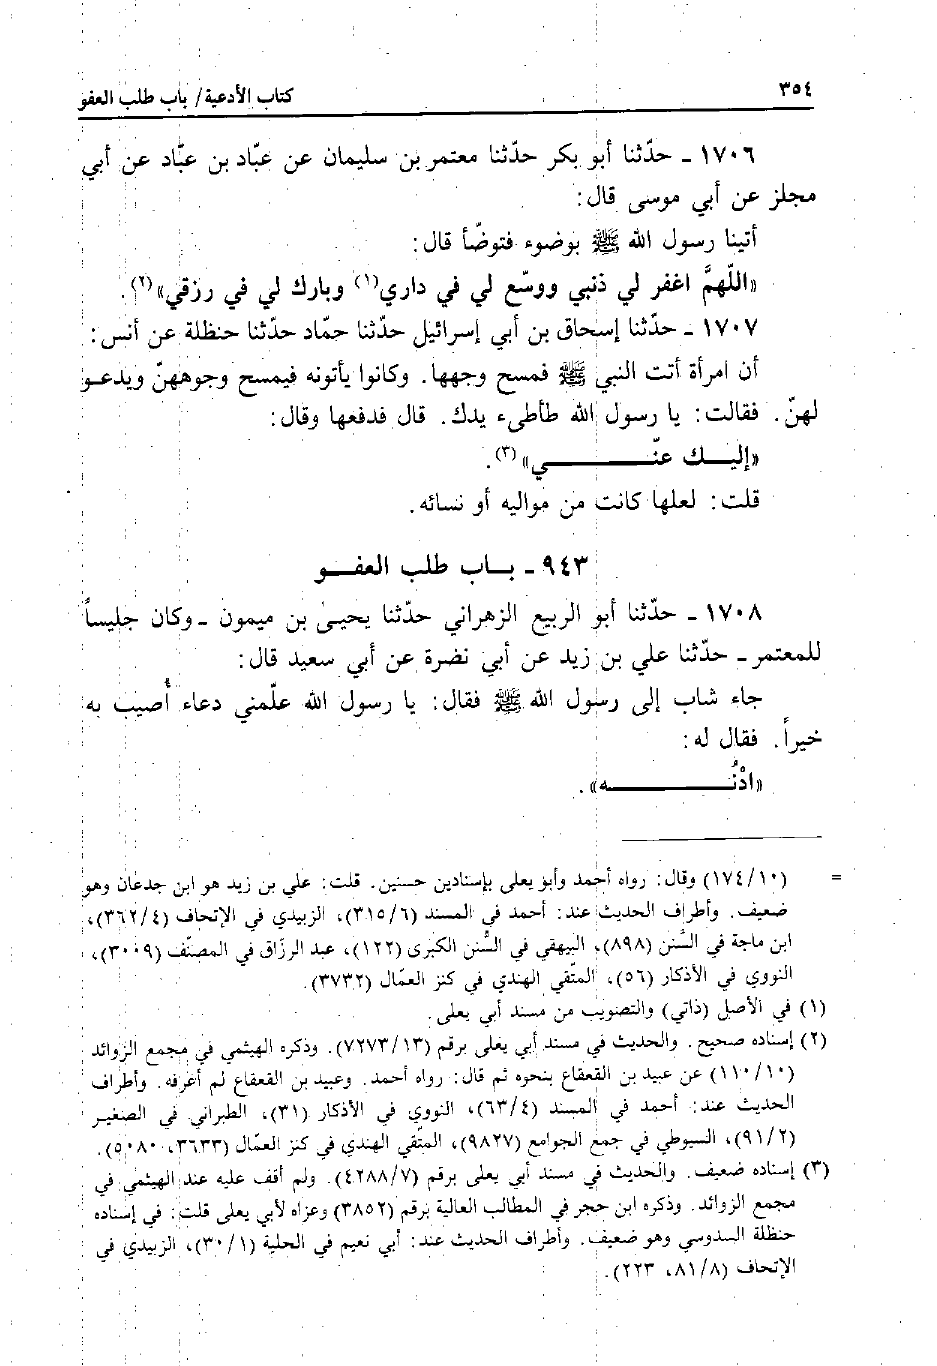 ٣٥٤ كتاب الأدعية/ باب طلب العفو
١٧٠٦ ـ حدّثنا أبو بكر حدّثنا معتمر بن سليمان عن عبّاد بن عبّاد عن أبي
مجلز عن أبي موسى قال:
أتينا رسول الله ﷺ بوضوء فتوضّأ قال:
«اللّهمَّ اغفر لي ذنبي ووسّع لي في داري(١) وبارك لي في رزقي»(٢).
١٧٠٧ ـ حدّثنا إسحاق بن أبي إسرائيل حدّثنا حمّاد حدّثنا حنظلة عن أنس:
أن امرأة أتت النبي ﷺ فمسح وجهها. وكانوا يأتونه فيمسح وجوههنّ ويدعـو
لهنّ. فقالت: يا رسول الله طأطىء يدك. قال فدفعها وقال:
«إليــك عنّــــــــــي»(٣).
قلت: لعلها كانت من مواليه أو نسائه.
٩٤٣ ـ بــاب طلب العفــو
١٧٠٨ ـ حدّثنا أبو الربيع الزهراني حدّثنا يحيىٰ بن ميمون ـ وكان جليساً
للمعتمر ـ حدّثنا علي بن زيد عن أبي نضرة عن أبي سعيد قال:
جاء شاب إلى رسول الله ﷺ فقال: يا رسول الله علّمني دعاء أُصيب به
خيراً. فقال له:
«ادْنُــــــــــــه».
= (١٧٤/١٠) وقال: رواه أحمد وأبو يعلى بإسنادين حسنين. قلت: علي بن زيد هو ابن جدعان وهو
ضعيف. وأطراف الحديث عند: أحمد في المسند (٣١٥/٦)، الزبيدي في الإتحاف (٣٦٢/٤)،
ابن ماجة في السُّنن (٨٩٨)، البيهقي في السُّنن الكبرى (١٢٢)، عبد الرزّاق في المصنّف (٣٠٠٩)،
النووي في الأذكار (٥٦)، المتّقي الهندي في كنز العمّال (٣٧٣٢).
(١) في الأصل (ذاتي) والتصويب من مسند أبي يعلى.
(٢) إسناده صحيح. والحديث في مسند أبي يعلى برقم (٧٢٧٣/١٣). وذكره الهيثمي في مجمع الزوائد
(١١٠/١٠) عن عبيد بن القعقاع بنحوه ثم قال: رواه أحمد. وعبيد بن القعقاع لم أعرفه. وأطراف
الحديث عند: أحمد في المسند (٦٣/٤)، النووي في الأذكار (٣١)، الطبراني في الصغير
(٩١/٢)، السيوطي في جمع الجوامع (٩٨٢٧)، المتّقي الهندي في كنز العمّال (٣٦٣٣، ٥٠٨٠).
(٣) إسناده ضعيف. والحديث في مسند أبي يعلى برقم (٤٢٨٨/٧). ولم أقف عليه عند الهيثمي في
مجمع الزوائد. وذكره ابن حجر في المطالب العالية برقم (٣٨٥٢) وعزاه لأبي يعلى قلت: في إسناده
حنظلة السدوسي وهو ضعيف. وأطراف الحديث عند: أبي نعيم في الحلية (٣٠/١)، الزبيدي في
الإتحاف (٨١/٨، ٢٢٣).